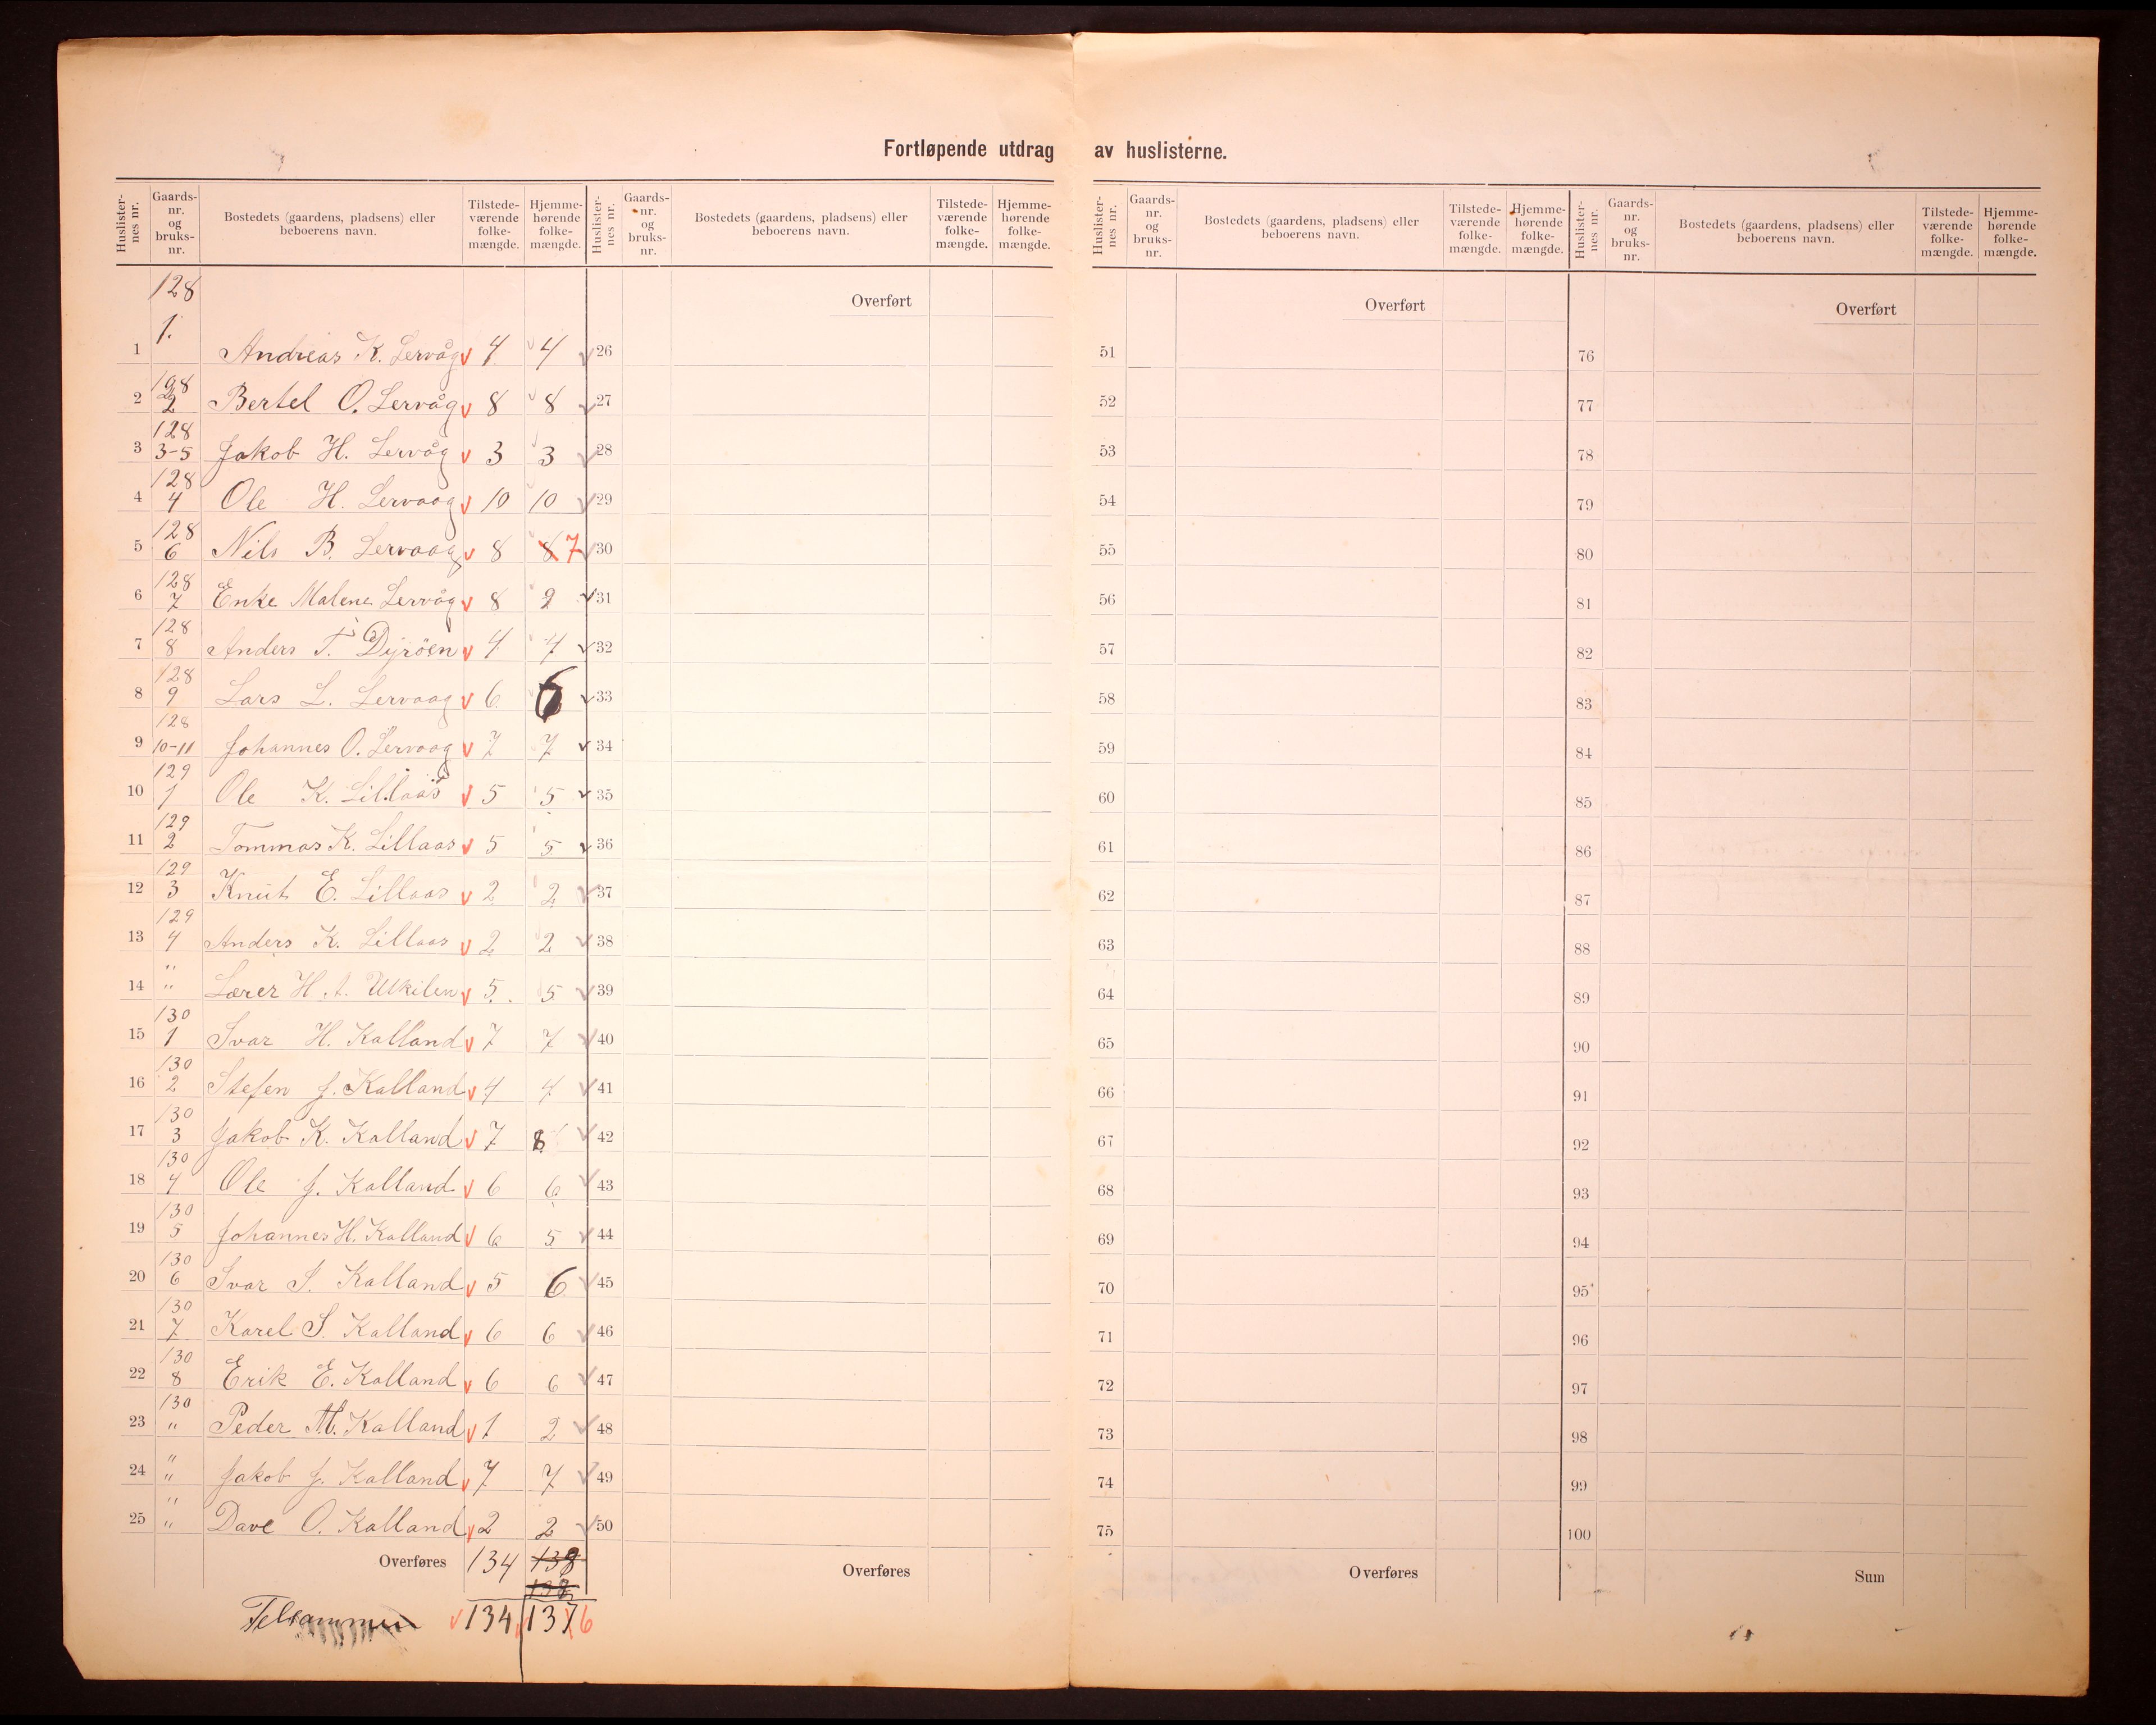 Fortløpende utdrag av huslisterne.
Huslisternes nr. Gaards-nr. og bruks-nr. Bostedets (gaardens, pladsens) eller beboerens navn. Tilstedeværende folkemængde. Hjemmehørende folkemængde. Huslisternes nr. Gaards-nr. og bruks-nr. Bostedets (gaardens, pladsens) eller beboerens navn. Tilstedeværende folkemængde. Hjemmehørende folkemængde. Huslisternes nr. Gaards-nr. og bruks-nr. Bostedets (gaardens, pladsens) eller beboerens navn. Tilstedeværende folkemængde. Hjemmehørende folkemængde. Huslisternes nr. Gaards-nr. og bruks-nr. Bostedets (gaardens, pladsens) eller beboerens navn. Tilstedeværende folkemængde. Hjemmehørende folkemængde.
Overført Overført Overført
1 128 1. Andreas K. Lervåg 4 4 26 51 76
2 128 2 Bertel O. Lervåg 8 8 27 52 77
3 128 3-5 Jakob H. Lervåg 3 3 28 53 78
4 128 4 Ole H. Lervaag 10 10 29 54 79
5 128 6 Nils B. Lervaag 8 8 7 30 55 80
6 128 7 Enke Malene Lervåg 8 9 31 56 81
7 128 8 Anders T. Dyröen 4 4 32 57 82
8 128 9 Lars L. Lervaag 6 6 33 58 83
9 128 10-11 Johannes O. Lervaag 7 7 34 59 84
10 129 1 Ole K. Lillaas 5 5 35 60 85
11 129 2 Tommas K. Lillaas 5 5 36 61 86
12 129 3 Knut E. Lillaas 2 2 37 62 87
13 129 4 Anders K. Lillaas 2 2 38 63 88
14 " " Lærer H. A. Ulkilen 5 5 39 64 89
15 130 1 Ivar H. Kalland 7 7 40 65 90
16 130 2 Stefen J. Kalland 4 4 41 66 91
17 130 3 Jakob K. Kalland 7 8 42 67 92
18 130 4 Ole J. Kalland 6 6 43 68 93
19 130 5 Johannes H. Kalland 6 5 44 69 94
20 130 6 Ivar S. Kalland 5 6 45 70 95
21 130 7 Karel S. Kalland 6 6 46 71 96
22 130 8 Erik E. Kalland 6 6 47 72 97
23 130 " Peder M. Kalland 1 2 48 73 98
24 " " Jakob J. Kalland 7 7 49 74 99
25 " " Dave O. Kalland 2 2 50 75 100
Overføres 134 138 Overføres Overføres Sum
138
Telsammen 134 137 6